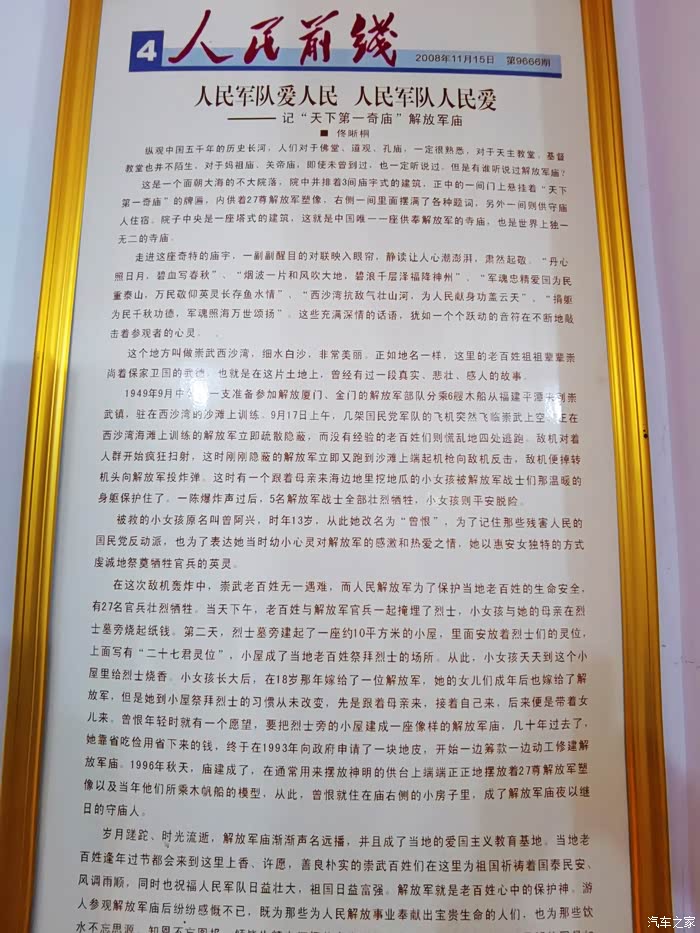 4 人民前线 2008年11月15日 第9666期
人民军队爱人民 人民军队人民爱
——记“天下第一奇庙”解放军庙
■ 佟晰桐
纵观中国五千年的历史长河，人们对于佛堂、道观、孔庙，一定很熟悉，对于天主教堂、基督
教堂也并不陌生，对于妈祖庙、关帝庙，即使未曾到过，也一定听说过。但是有谁听说过解放军庙？
这是一个面朝大海的不大院落，院中并排着3间庙宇式的建筑，正中的一间门上悬挂着“天下
第一奇庙”的牌匾，内供着27尊解放军塑像，右侧一间里面摆满了各种题词，另外一间则供守庙
人住宿。院子中央是一座塔式的建筑，这就是中国唯一一座供奉解放军的寺庙，也是世界上独一
无二的寺庙。
走进这座奇特的庙宇，一副副醒目的对联映入眼帘，静读让人心潮澎湃，肃然起敬。“丹心
照日月，碧血写春秋”、“烟波一片和风吹大地，碧浪千层泽福降神州”、“军魂忠精爱国为民
重泰山，万民敬仰英灵长存鱼水情”、“西沙湾抗敌气壮山河，为人民献身功盖云天”、“捐躯
为民千秋功德，军魂照海万世颂扬”。这些充满深情的话语，犹如一个个跃动的音符在不断地敲
击着参观者的心灵。
这个地方叫做崇武西沙湾，细水白沙，非常美丽。正如地名一样，这里的老百姓祖祖辈辈崇
尚着保家卫国的武德，也就是在这片土地上，曾经有过一段真实、悲壮、感人的故事。
1949年9月中 一支准备参加解放厦门、金门的解放军部队分乘6艘木船从福建平潭来到崇
武镇，驻在西沙湾的沙滩上训练。9月17日上午，几架国民党军队的飞机突然飞临崇武上空，正在
西沙湾海滩上训练的解放军立即疏散隐蔽，而没有经验的老百姓们则慌乱地四处逃跑。敌机对着
人群开始疯狂扫射，这时刚刚隐蔽的解放军立即又跑到沙滩上端起机枪向敌机反击，敌机便掉转
机头向解放军投炸弹。这时有一个跟着母亲来海边地里挖地瓜的小女孩被解放军战士们那温暖的
身躯保护住了。一陈爆炸声过后，5名解放军战士全部壮烈牺牲，小女孩则平安脱险。
被救的小女孩原名叫曾阿兴，时年13岁，从此她改名为“曾恨”，为了记住那些残害人民的
国民党反动派，也为了表达她当时幼小心灵对解放军的感激和热爱之情，她以惠安女独特的方式
虔诚地祭奠牺牲官兵的英灵。
在这次敌机轰炸中，崇武老百姓无一遇难，而人民解放军为了保护当地老百姓的生命安全，
有27名官兵壮烈牺牲。当天下午，老百姓与解放军官兵一起掩埋了烈士，小女孩与她的母亲在烈
士墓旁烧起纸钱。第二天，烈士墓旁建起了一座约10平方米的小屋，里面安放着烈士们的灵位，
上面写有“二十七君灵位”，小屋成了当地老百姓祭拜烈士的场所。从此，小女孩天天到这个小
屋里给烈士烧香。小女孩长大后，在18岁那年嫁给了一位解放军，她的女儿们成年后也嫁给了解
放军，但是她到小屋祭拜烈士的习惯从未改变，先是跟着母亲来，接着自己来，后来便是带着女
儿来。曾恨年轻时就有一个愿望，要把烈士旁的小屋建成一座像样的解放军庙，几十年过去了，
她靠省吃俭用省下来的钱，终于在1993年向政府申请了一块地皮，开始一边筹款一边动工修建解
放军庙。1996年秋天，庙建成了，在通常用来摆放神明的供台上端端正正地摆放着27尊解放军塑
像以及当年他们所乘木帆船的模型，从此，曾恨就住在庙右侧的小房子里，成了解放军庙夜以继
日的守庙人。
岁月蹉跎、时光流逝，解放军庙渐渐声名远播，并且成了当地的爱国主义教育基地。当地老
百姓逢年过节都会来到这里上香、许愿，善良朴实的崇武百姓们在这里为祖国祈祷着国泰民安、
风调雨顺，同时也祝福人民军队日益壮大，祖国日益富强。解放军就是老百姓心中的保护神。游
人参观解放军庙后纷纷感慨不已，既为那些为人民解放事业奉献出宝贵生命的人们，也为那些饮
水不忘思源、知恩不忘图报
汽车之家